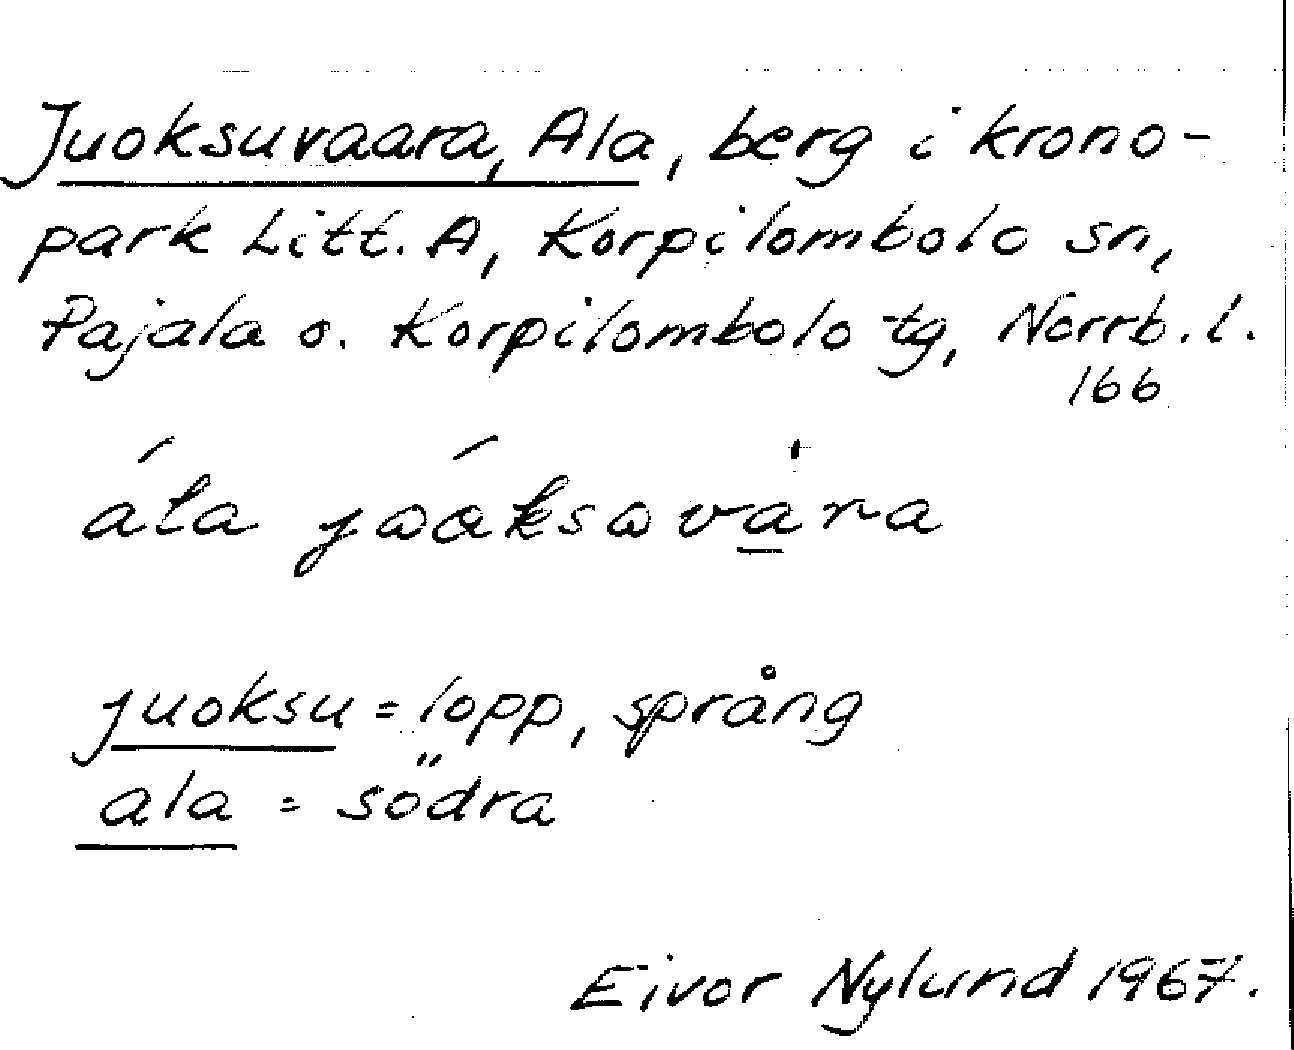 Juoksuvaara, Ala, berg i krono-
park Litt. A, Korpilombolo sn,
Pajala o. Korpilombolo tg, Norrb. l.
166
juoksu = lopp, språng
ala = södra
Eivor Nylund 1967.